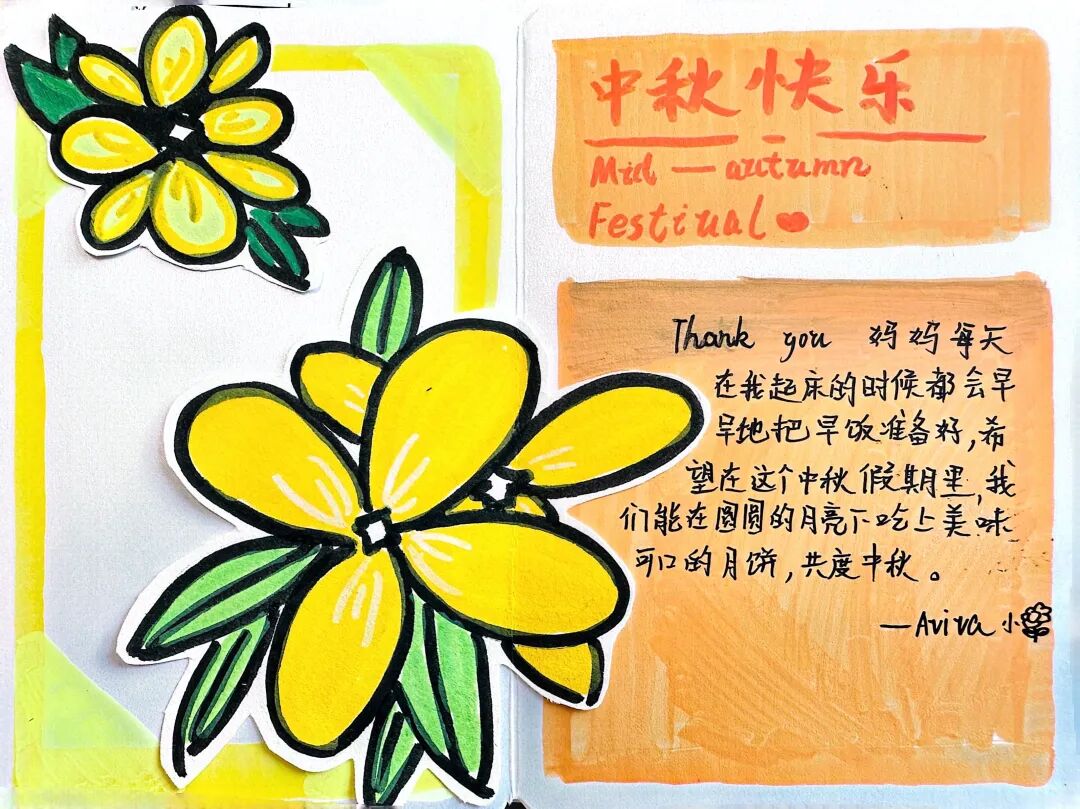 中秋快乐
Mid — autumn
Festival
Thank you 妈妈每天
在我起床的时候都会早
早地把早饭准备好,希
望在这个中秋假期里,我
们能在圆圆的月亮下吃上美味
可口的月饼,共度中秋。
—Aviva 小